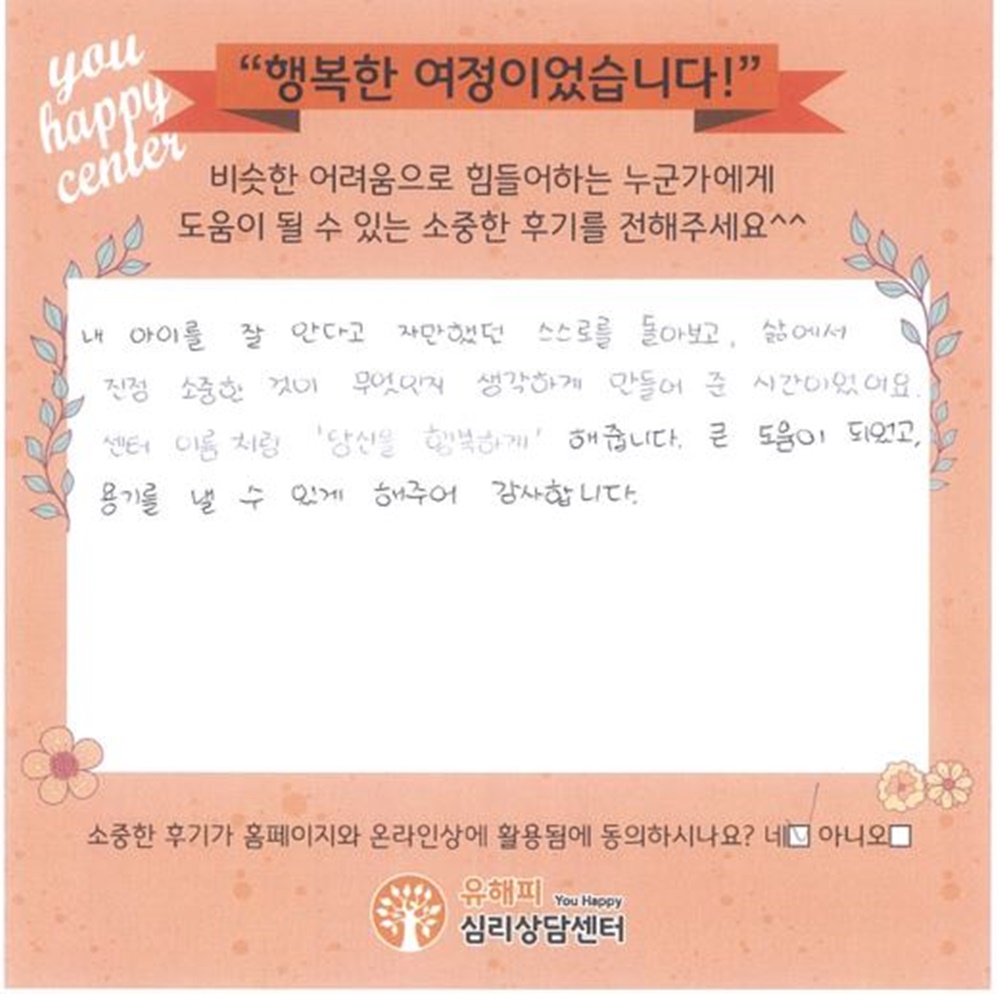 you
happy
center
“행복한 여정이었습니다!”
비슷한 어려움으로 힘들어하는 누군가에게
도움이 될 수 있는 소중한 후기를 전해주세요^^
내 아이를 잘 안다고 자만했던 스스로를 돌아보고, 삶에서
진정 소중한 것이 무엇인지 생각하게 만들어 준 시간이었어요.
센터 이름처럼 '당신을 행복하게' 해줍니다. 큰 도움이 되었고,
용기를 낼 수 있게 해주어 감사합니다.
소중한 후기가 홈페이지와 온라인상에 활용됨에 동의하시나요? 네 아니오
유해피 You Happy
심리상담센터